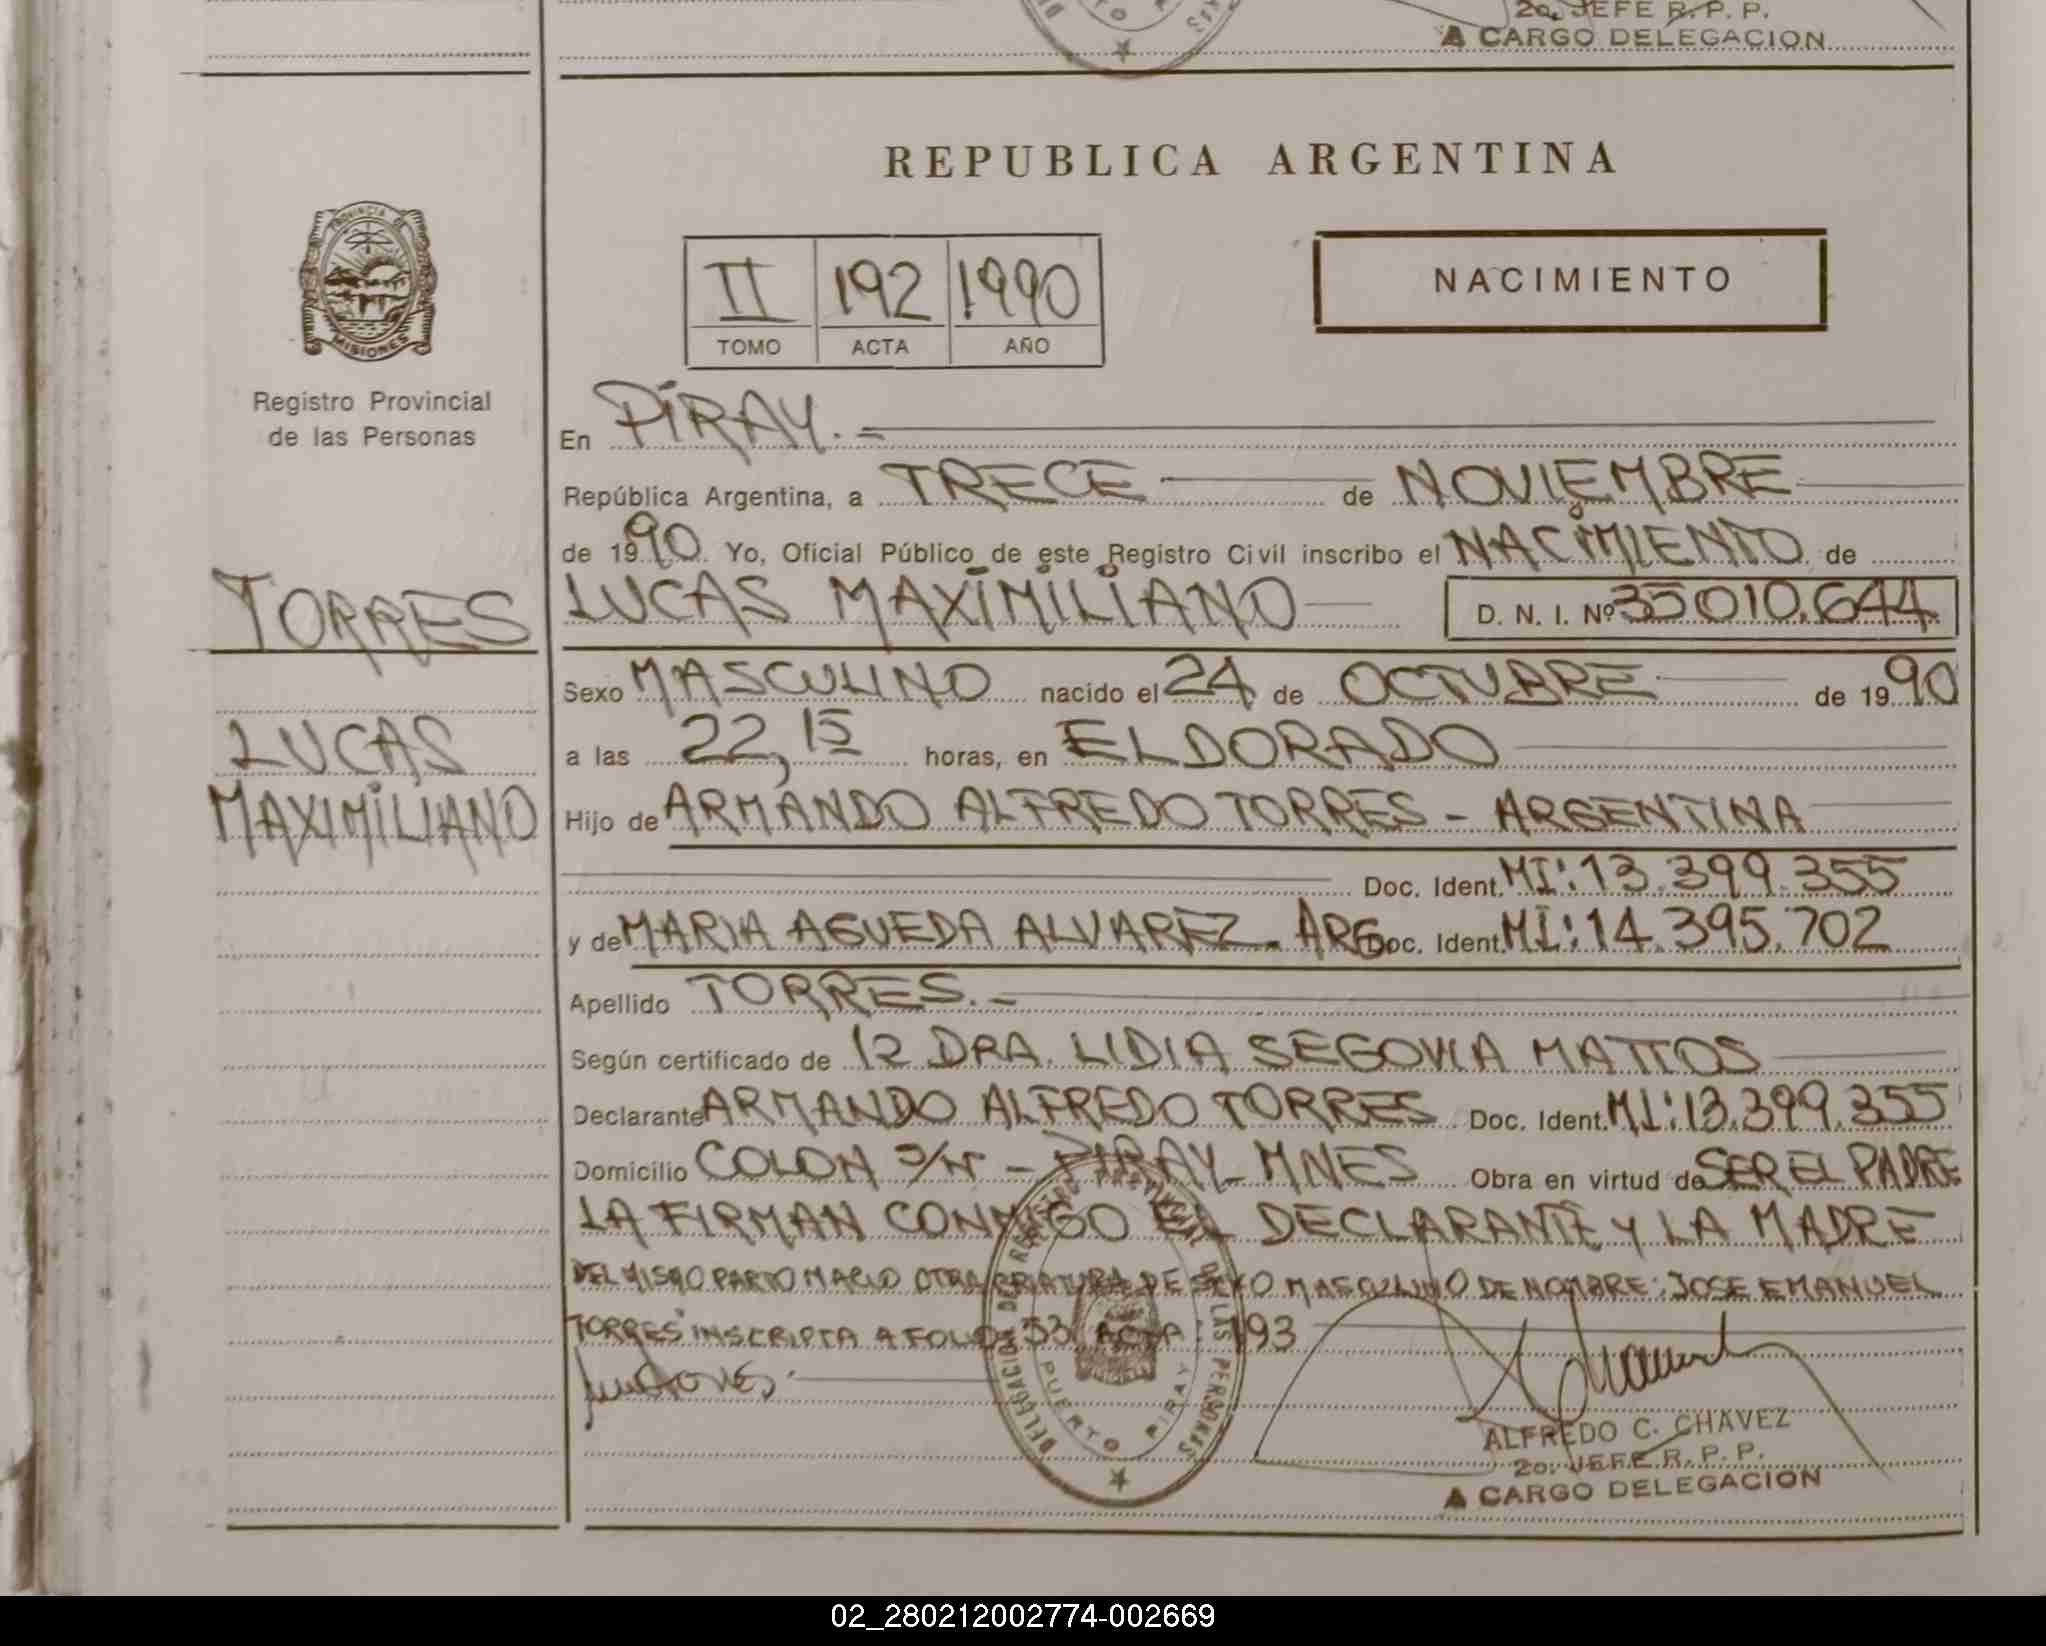 2o. JEFE R. P. P.
A CARGO DELEGACION
REPUBLICA ARGENTINA
PROVINCIA DE
MISIONES
Registro Provincial
de las Personas
II 192 1990
TOMO ACTA AÑO
NACIMIENTO
En PIRAY.-
República Argentina, a TRECE de NOVIEMBRE
de 1990 Yo, Oficial Público de este Registro Civil inscribo el NACIMIENTO de
LUCAS MAXIMILIANO D. N. I. Nº 35010.644
TORRES
LUCAS
MAXIMILIANO
Sexo MASCULINO nacido el 24 de OCTUBRE de 1990
a las 22,15 horas, en ELDORADO
Hijo de ARMANDO ALFREDO TORRES - ARGENTINA
Doc. Ident. MI: 13.399.355
y de MARIA AGUEDA ALVAREZ. ARG Doc. Ident. MI: 14.395.702
Apellido TORRES.-
Según certificado de DRA. LIDIA SEGOVIA MATTOS
Declarante ARMANDO ALFREDO TORRES Doc. Ident. MI: 13.399.355
Domicilio COLON S/N - PIRAY - MNES Obra en virtud de SER EL PADRE
LA FIRMAN CONMIGO EL DECLARANTE y LA MADRE
DEL MISMO PARTO NACIO OTRA CRIATURA DE SEXO MASCULINO DE NOMBRE: JOSE EMANUEL
TORRES INSCRIPTA A FOLIO 33 ACTA 193
DELEGACION DEL REGISTRO PROVINCIAL DE LAS PERSONAS
PUERTO PIRAY
ALFREDO C. CHAVEZ
2o. JEFE R. P. P.
A CARGO DELEGACION
02_280212002774-002669